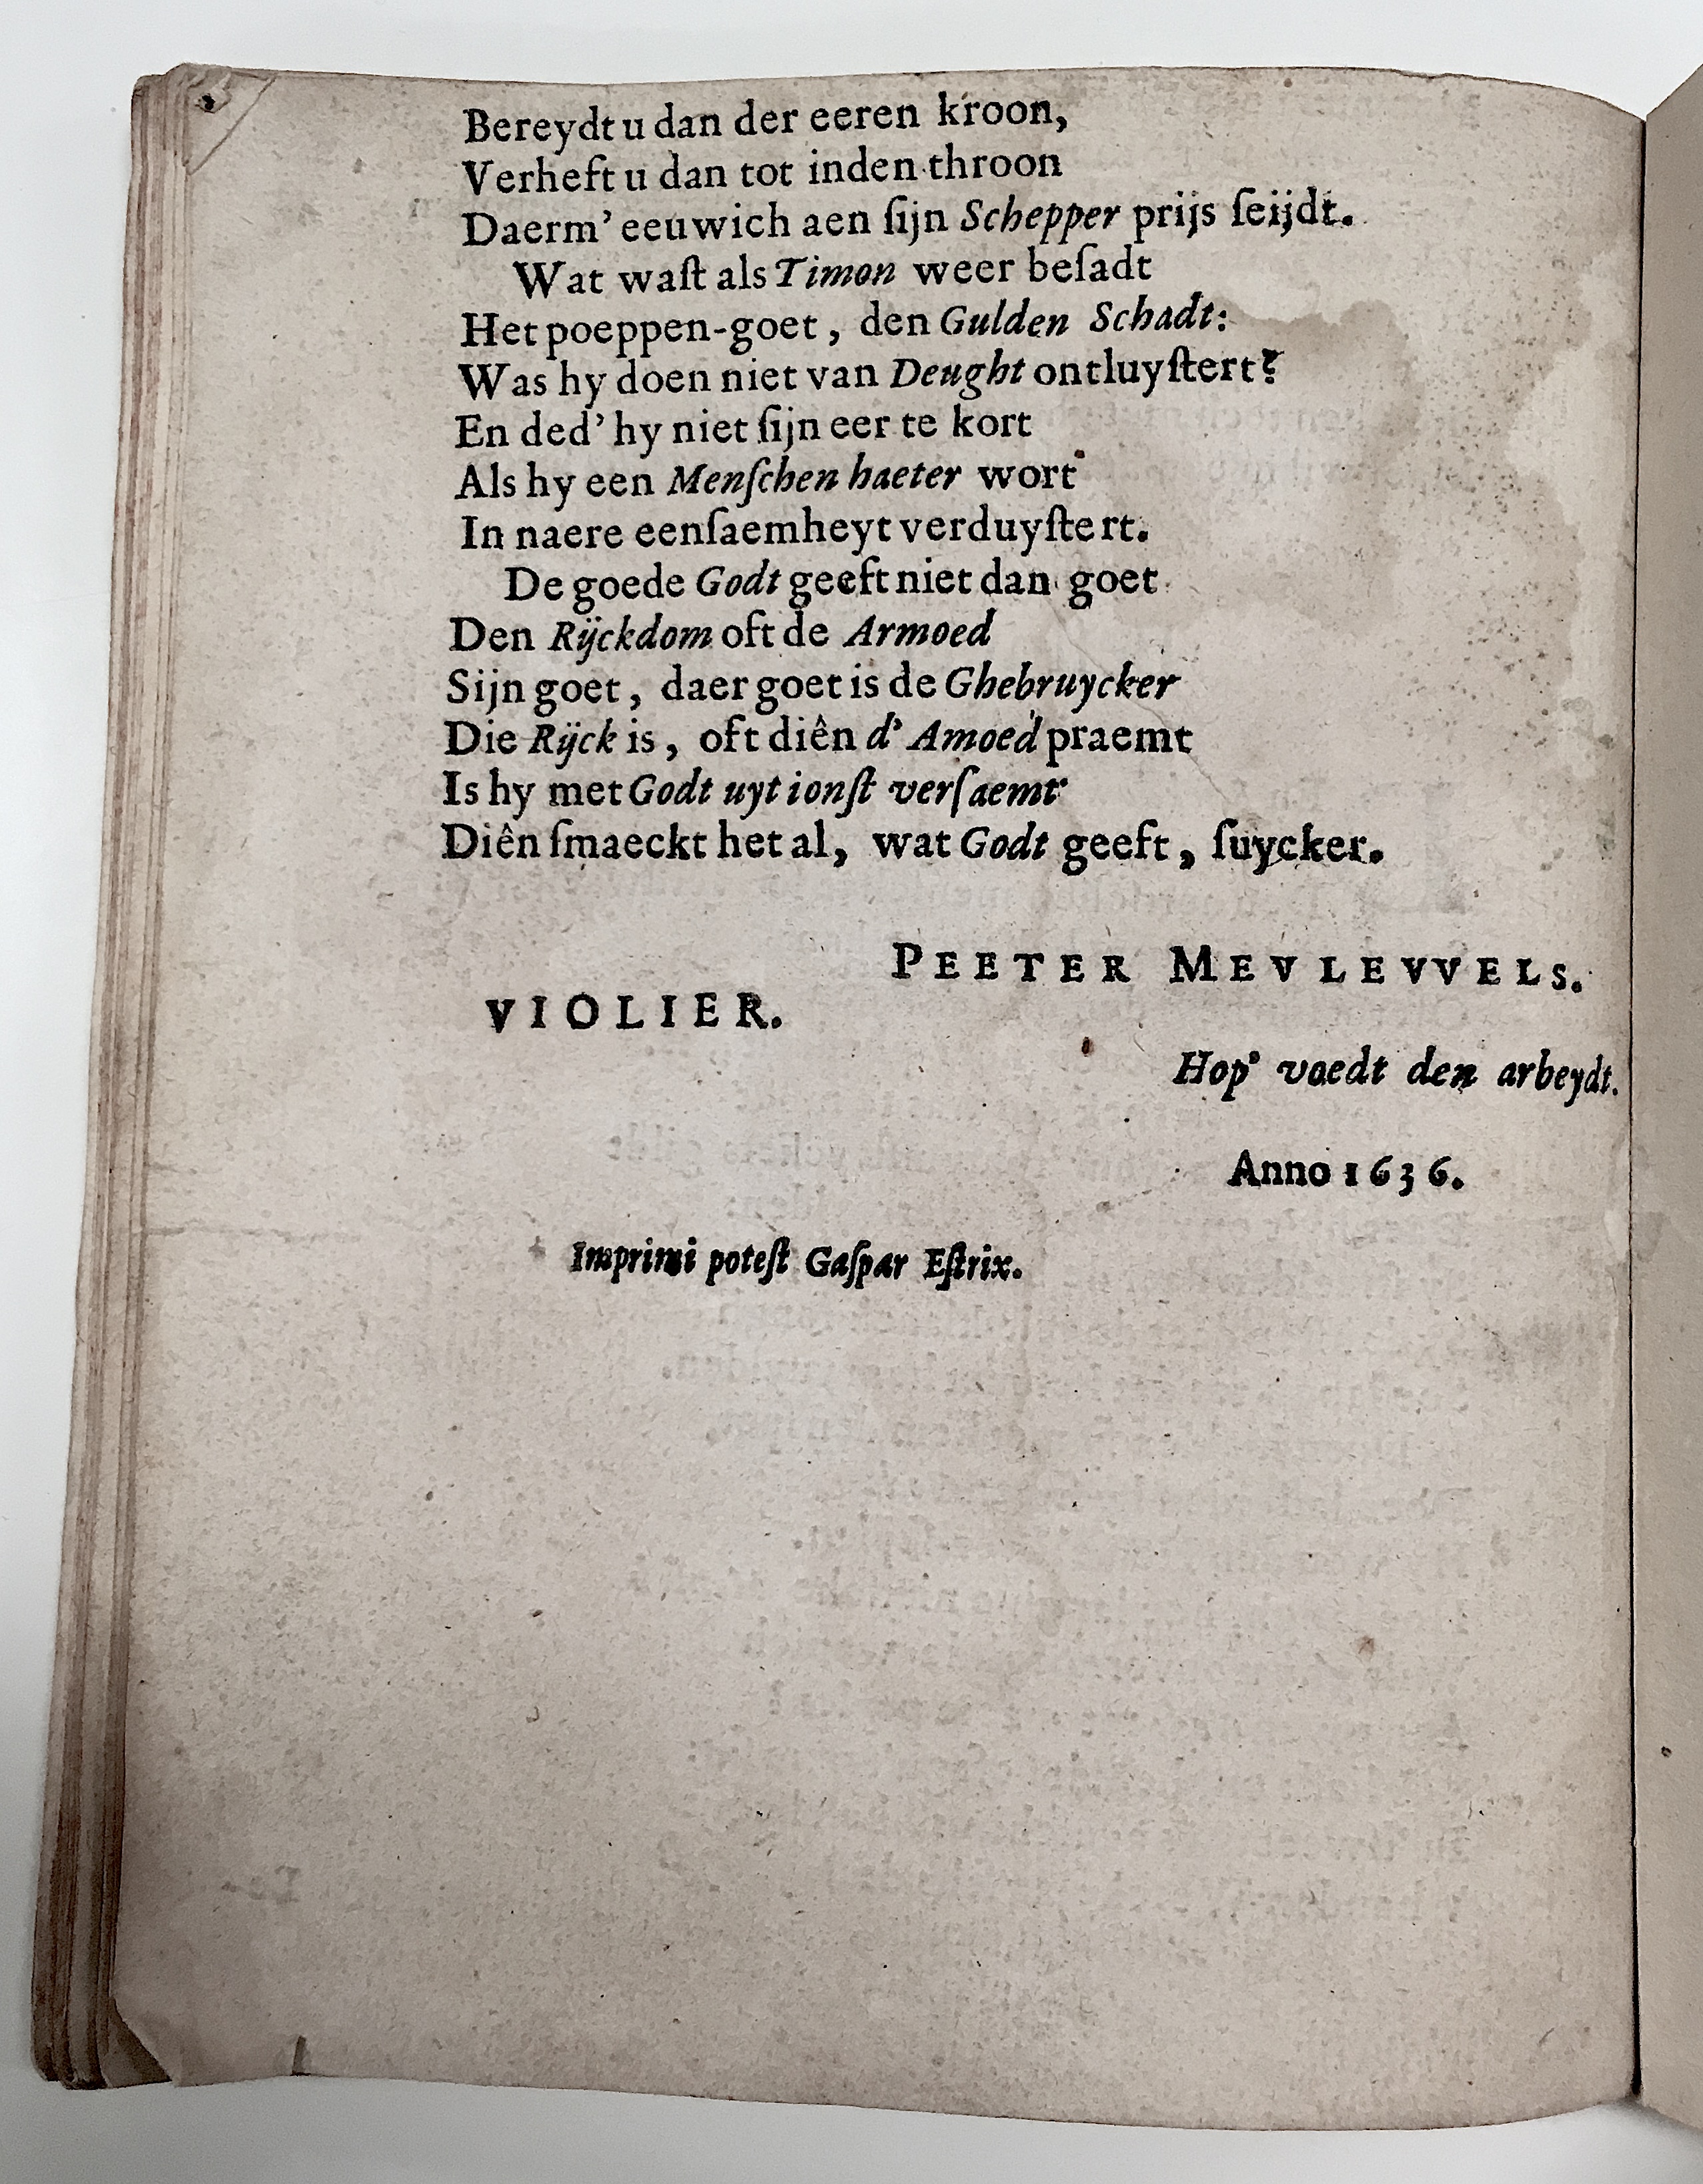 Bereydt u dan der eeren kroon,
Verheft u dan tot inden throon
Daerm' eeuwich aen ſijn Schepper prijs ſeijdt.
Wat waſt als Timon weer beſadt
Het poeppen-goet, den Gulden Schadt:
Was hy doen niet van Deught ontluyſtert?
En ded' hy niet ſijn eer te kort
Als hy een Menſchen haeter wort
In naere eenſaemheyt verduyſtert.
De goede Godt geeft niet dan goet
Den Rijckdom oft de Armoed
Sijn goet, daer goet is de Ghebruycker
Die Rijck is, oft diên d' Amoed praemt
Is hy met Godt uyt ionſt verſaemt
Diên ſmaeckt het al, wat Godt geeft, ſuycker.
PEETER MEVLEVVELS.
VIOLIER.
Hop' voedt den arbeydt.
Anno 1636.
Imprimi poteſt Gaſpar Eſtrix.